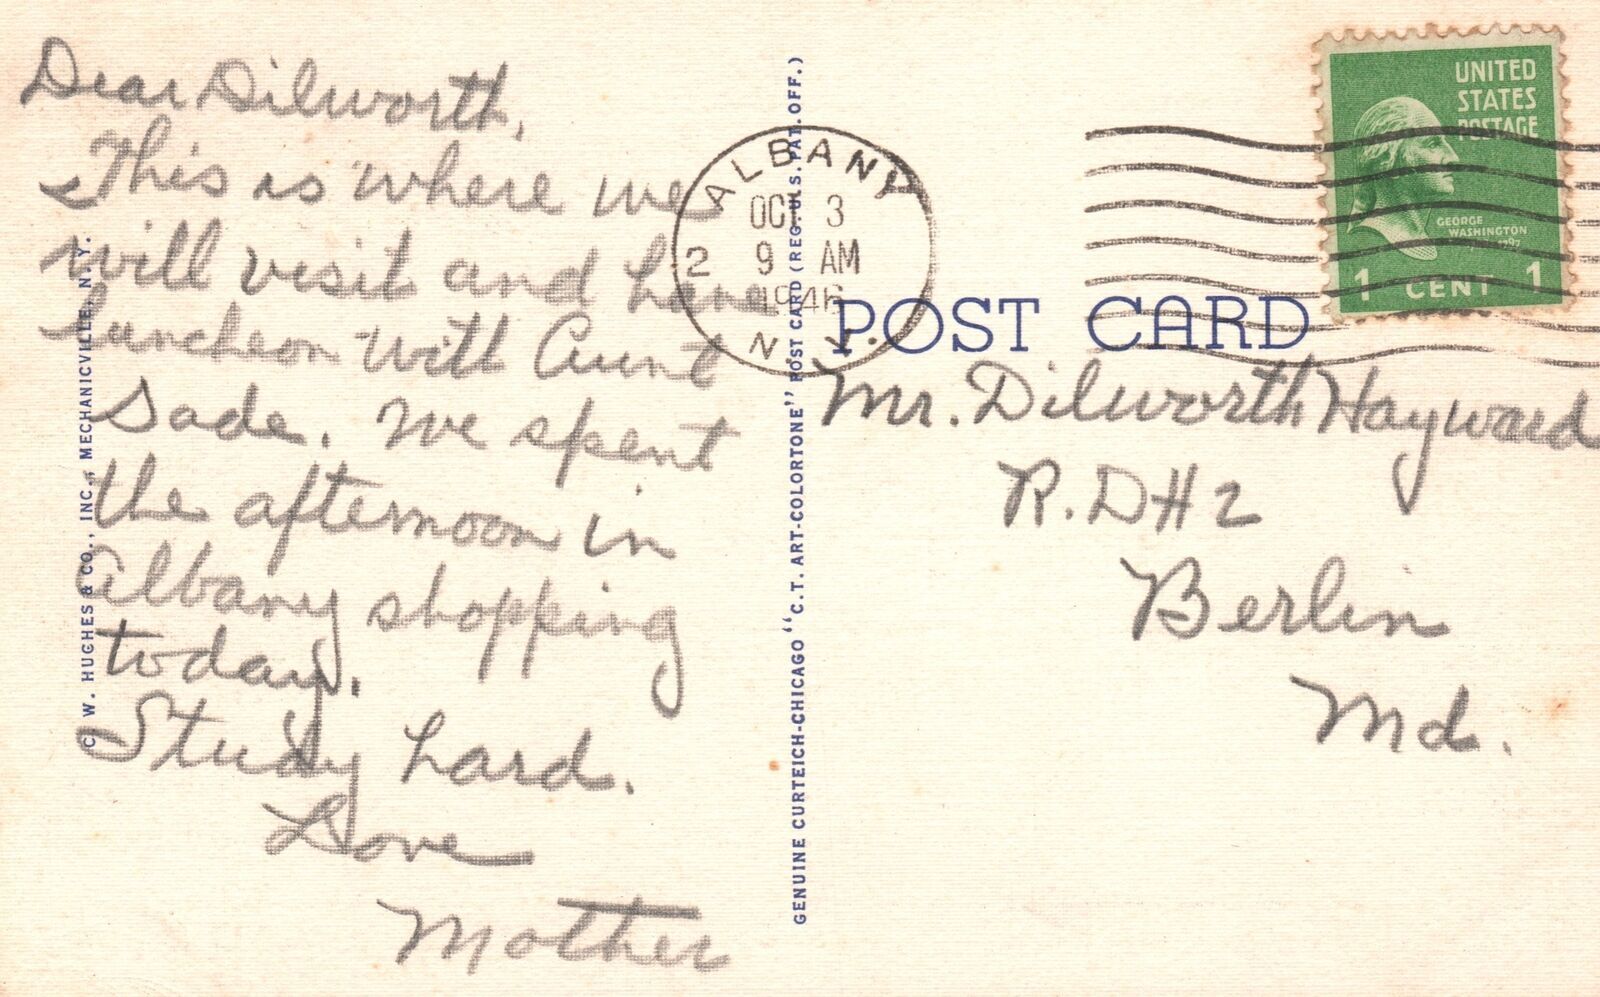 Dear Dilworth,
This is where we
will visit and have
luncheon with Aunt
Sade. We spent
the afternoon in
Albany shopping
today.
Study hard.
Love
Mother
C. W. HUGHES & CO., INC., MECHANICVILLE, N. Y.
GENUINE CURTEICH-CHICAGO "C. T. ART-COLORTONE" POST CARD (REG. U. S. PAT. OFF.)
ALBANY
OCT 3
2 9 AM
1946
N.Y.
UNITED
STATES
POSTAGE
GEORGE
WASHINGTON
1797
1 CENT 1
POST CARD
Mr. Dilworth Hayward
R.D#2
Berlin
Md.